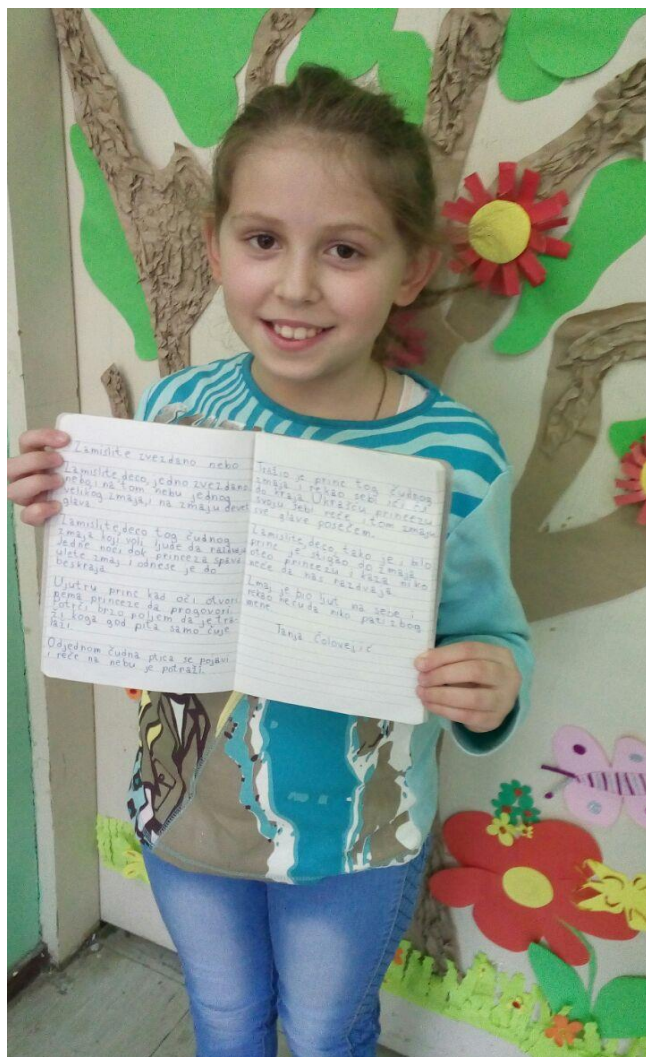 Zamislite zvezdano nebo
Zamislite, deco, jedno zvezdano
nebo, i na tom nebu jednog
velikog zmaja, i na zmaju devet
glava.
Zamislite, deco tog čudnog
zmaja koji voli ljude da razdvaja
Jedne noći dok princeza spava
ulete zmaj i odnese je do
beskraja.
Ujutru princ kad oči otvori
nema princeze da progovori.
Potrči brzo poljem da je tra-
ži, koga god pita samo čuje
laži.
Odjednom čudna ptica se pojavi
i reče na nebu je potraži.
Tražio je princ tog čudnog
zmaja i rekao sebi ići ću
do kraja. Ukrašću princezu
svoju sebi reče, i tom zmaju
sve glave posečem.
Zamislite, deco, tako je i bilo
princ je stigao do zmaja
oteo princezu i kaza niko
neće da nas razdvaja.
Zmaj je bio ljut na sebe i
rekao neću da niko pati zbog
mene.
Tanja